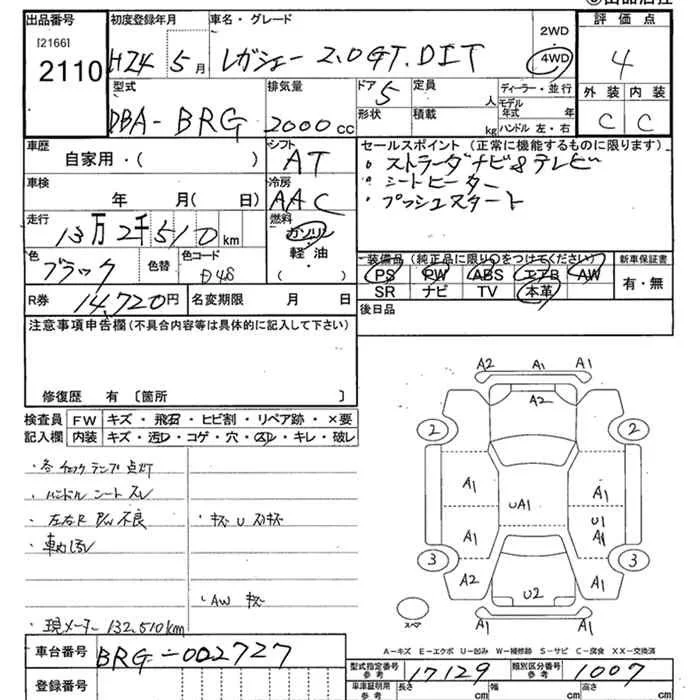 出品番号 初度登録年月 車名・グレード 2WD 評価点
[2166]
2110 H24 5月 レガシィー 2.0GT.DIT 4WD 4
型式 排気量 ドア 5 定員 人 ディーラー・並行 外装 内装
DBA-BRG 2000cc 形状 積載 kg モデル年式 年 ハンドル 左・右 C C
車歴 自家用・( ) シフト AT セールスポイント(正常に機能するものに限ります)
・ストラーダナビ&テレビ
車検 年 月( 日) 冷房 AAC ・シートヒーター
・プッシュスタート
走行 13万2千510km 燃料 ガソリン
軽油
・( )
色 ブラック 色替 色コード D48 装備品(純正品に限り○をつけてください) 新車保証書
PS PW ABS エアB AW 有・無
R券 14,720円 名変期限 月 日 SR ナビ TV 本革
注意事項申告欄(不具合内容等は具体的に記入して下さい) 後日品
修復歴 有〔箇所 〕
検査員 FW キズ・飛石・ヒビ割・リペア跡・×要
記入欄 内装 キズ・汚レ・コゲ・穴・スレ・キレ・破レ
・各チェックランプ点灯
・ハンドル シート スレ
・左右R P/W 不良 ・キズ U スリキズ
・AW キズ
・現メーター 132,510km
A2 A1 A1
A2
2 2
A1 UA1 A1
U1
A1 A1
3 3
A2 A1
U2
A1 A1
スペア
A-キズ E-エクボ U-凹み W-補修跡 S-サビ C-腐食 XX-交換済
車台番号 BRG-002727 型式指定番号 参考 17129 類別区分番号 参考 1007
登録番号 車庫証明用 参考 長さ cm 幅 cm 高さ cm